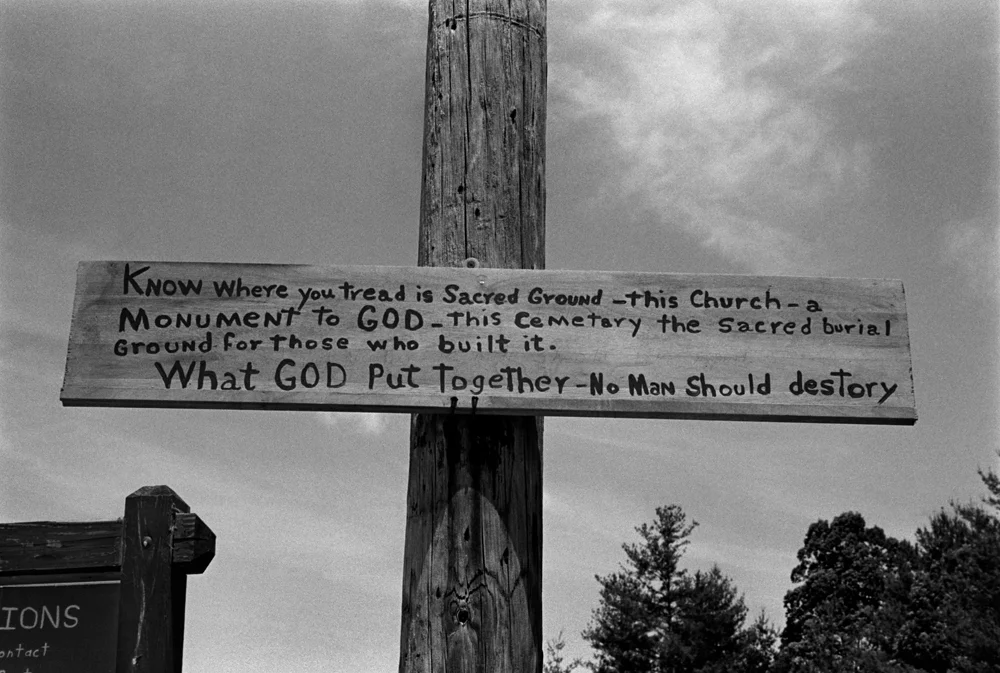 Know where you tread is Sacred Ground - this Church - a
Monument to GOD - this Cemetary the sacred burial
Ground for those who built it.
What GOD Put Together - No Man Should destory
IONS
ontact